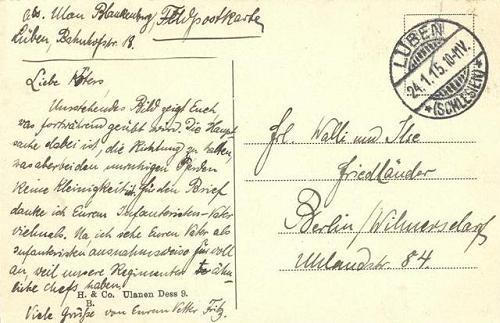 Abs. Ulan Blankenburg, Feldpostkarte
Lüben, Bahnhofstr. 13.
LÜBEN
24.1.15.10-11V.
*(SCHLESIEN)*
Liebe
Umstehendes Bild zeigt Euch
was fortwährend geübt wird. Die Haupt
sache dabei ist, die Richtung zu halten,
was aber bei den unruhigen Pferden
keine Kleinigkeit ist. für den Brief
danke ich Eurem Infanteristen-Vater
vielmals. Na ich sehe Euren Vater als
Infanteristen ausnahmsweise für voll
an, weil unsere Regimenter
liche Chefs haben.
H. & Co. Ulanen Dess 9.
B.
Viele Grüße von Eurem Vetter Fritz.
Frl. Walli und Ilse
Friedländer
Berlin/Wilmersdorf
Uhlandstr. 84.